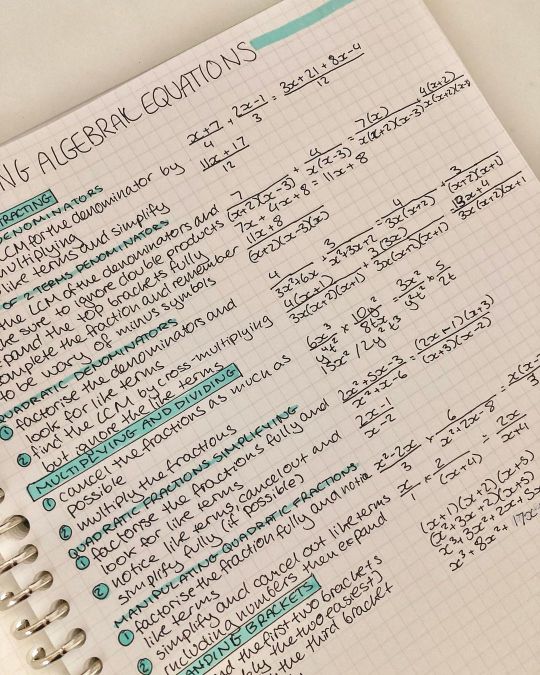 NG ALGEBRAIC EQUATIONS
TRACTING
DENOMINATORS
LCM for the denominator by
multiplying
like terms and simplify
OF 2 TERMS DENOMINATORS
the LCM of the denominators and
be sure to ignore double products
expand the top brackets fully
complete the fraction and remember
to be wary of minus symbols
QUADRATIC DENOMINATORS
① factorise the denominators and
look for like terms
② find the LCM by cross-multiplying
but ignore the like terms
MULTIPLYING AND DIVIDING
① cancel the fractions as much as
possible
② multiply the fractions
QUADRATIC FRACTIONS SIMPLIFYING
① factorise the fractions fully and
look for like terms
② notice like terms, cancel out and
simplify fully (if possible)
MANIPULATING QUADRATIC FRACTIONS
① factorise the fraction fully and notice
like terms
② simplify and cancel out like terms
including numbers then expand
ANDING BRACKETS
nd the first two brackets
bly the two easiest)
the third bracket
x+7/4 + 2x-1/3 = 3x+21+8x-4/12
11x+17/12
7/(x+2)(x-3) + 4/x(x-3) = 7(x)/x(x+2)(x-3) + 4(x+2)/x(x+2)(x-3)
7x + 4x + 8 = 11x + 8
11x+8/(x+2)(x-3)(x)
4/3x²+6x + 3/x²+3x+2 = 4/3x(x+2) + 3/(x+2)(x+1)
4(x+1)/3x(x+2)(x+1) + 3(3x)/3x(x+2)(x+1) 13x+4/3x(x+2)(x+1
6x³/y⁴t² × 10y²/8tx = 3x²/y²t² × 5/2t
2x²+5x-3/x²+x-6 = (2x-1)(x+3)/(x+3)(x-2)
2x-1/x-2
x²-2x/3 × 6/x²+2x-8 = x(x-2
x/1 × 2/(x+4) = 2x/x+4
(x+1)(x+2)(x+5)
(x²+3x+2)(x+5)
x³+3x²+2x+5x
x³+8x²+17x